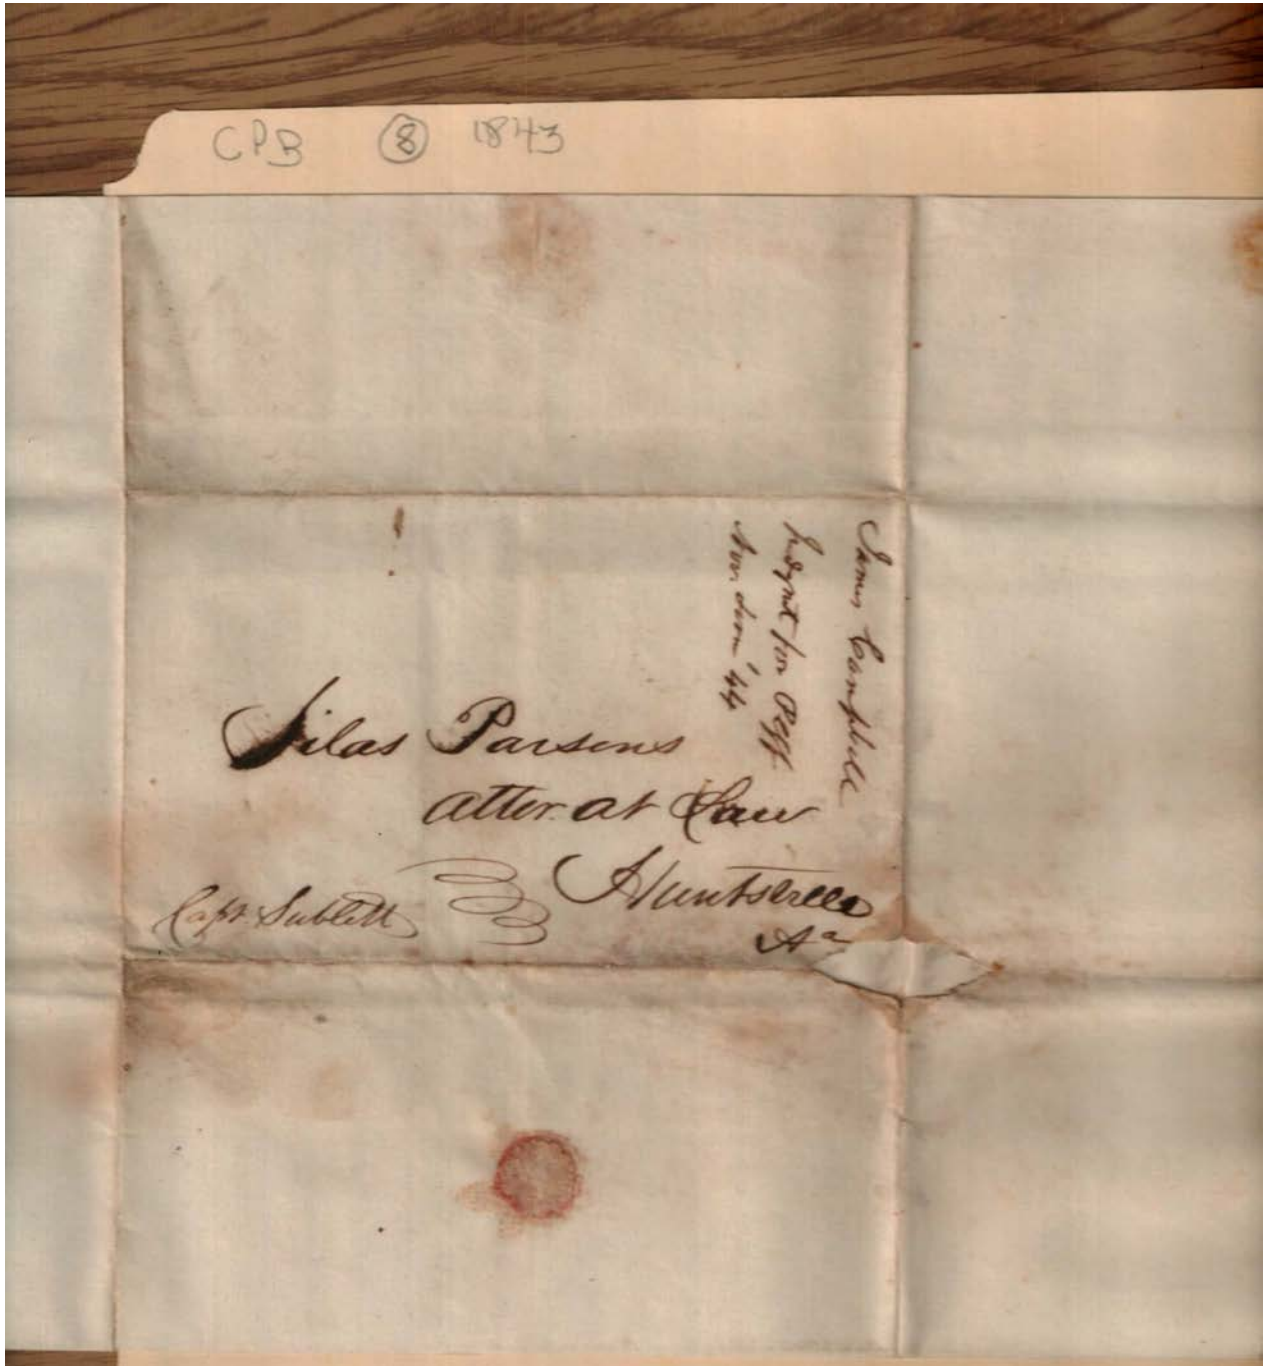 CPB 8 1843
James Campbell
Judgmt for Plff
Nov. 44
Silas Parsons
atter. at Law
Huntsville
Aa
Capt. Sublett